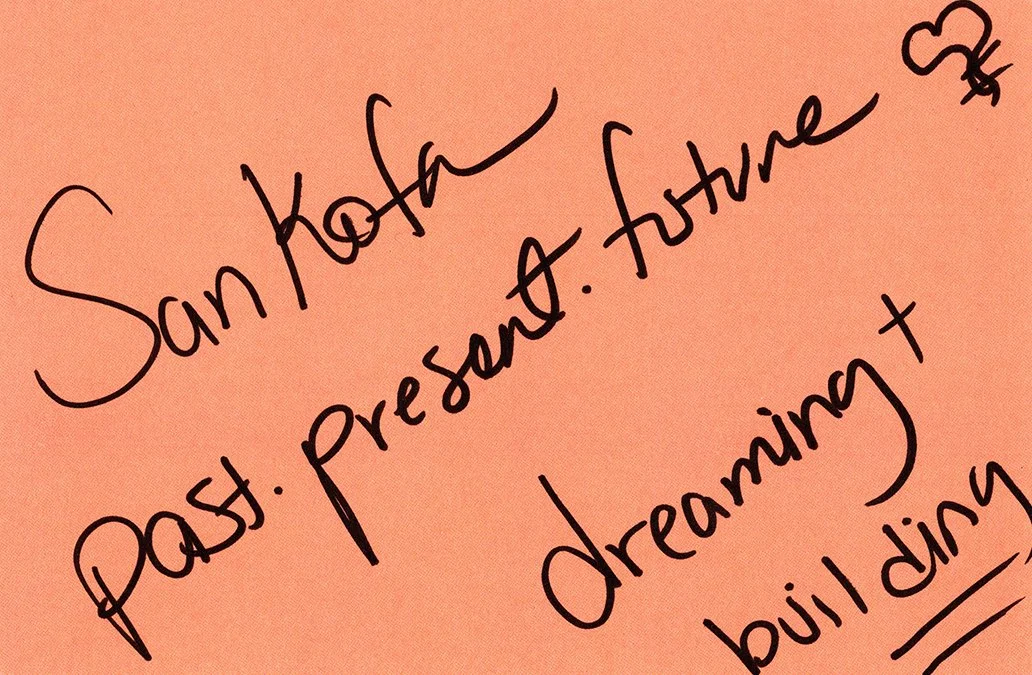 Sankofa
past. present. future
dreaming +
building